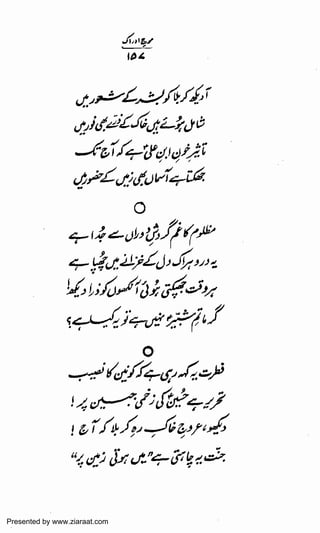 موجِ ادراک
۱۵۷
آ دیکھ کربلا کو بشر کے شعور میں
شامل ہوئے ہیں خاک کے ذرّے بھی نور میں
تاثیرِ خونِ ابنِ علیؑ ہے کہ آج تک
جھکتا ہے آسماں بھی زمیں کے حضور میں
مظلوم کا غم گردشِ دوراں سے جُدا ہے
یہ درد ہر اک دل کے خزانے میں چھپا ہے
ہر وقت جھپکتی ہوئی آنکھوں کو ذرا دیکھ!
گر ماتمِ شبیرؑ نہیں ہے تو یہ کیا ہے؟
فطرت یہ کہہ رہی ہے کہ کونین کا نصیب
تحریر ہے حسینؑ کی زخمی جبیں پر!
دیکھو، عروجِ خاکِ رہِ کربلا کہ آج!
جنت یہ چاہتی ہے "میں ہوتی زمین پر"
Presented by www.ziaraat.com